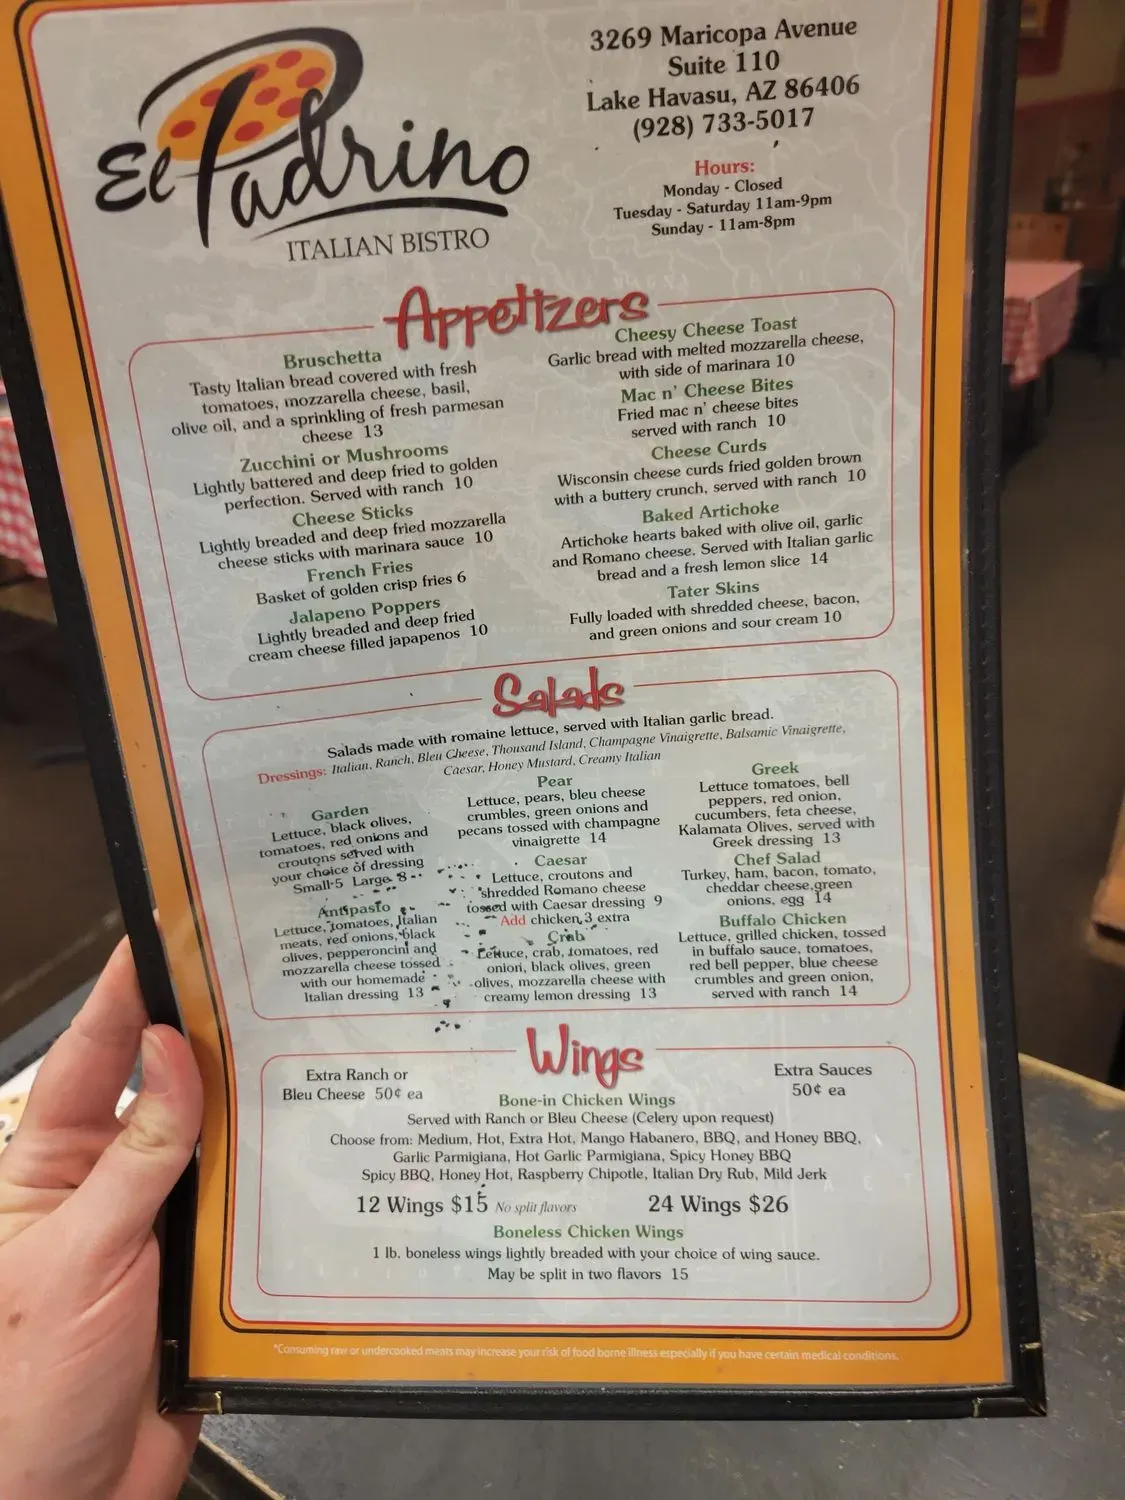 El Padrino
ITALIAN BISTRO
3269 Maricopa Avenue
Suite 110
Lake Havasu, AZ 86406
(928) 733-5017
Hours:
Monday - Closed
Tuesday - Saturday 11am-9pm
Sunday - 11am-8pm
Appetizers
Bruschetta
Tasty Italian bread covered with fresh
tomatoes, mozzarella cheese, basil,
olive oil, and a sprinkling of fresh parmesan
cheese 13
Zucchini or Mushrooms
Lightly battered and deep fried to golden
perfection. Served with ranch 10
Cheese Sticks
Lightly breaded and deep fried mozzarella
cheese sticks with marinara sauce 10
French Fries
Basket of golden crisp fries 6
Jalapeno Poppers
Lightly breaded and deep fried
cream cheese filled japapenos 10
Cheesy Cheese Toast
Garlic bread with melted mozzarella cheese,
with side of marinara 10
Mac n' Cheese Bites
Fried mac n' cheese bites
served with ranch 10
Cheese Curds
Wisconsin cheese curds fried golden brown
with a buttery crunch, served with ranch 10
Baked Artichoke
Artichoke hearts baked with olive oil, garlic
and Romano cheese. Served with Italian garlic
bread and a fresh lemon slice 14
Tater Skins
Fully loaded with shredded cheese, bacon,
and green onions and sour cream 10
Salads
Salads made with romaine lettuce, served with Italian garlic bread.
Dressings: Italian, Ranch, Bleu Cheese, Thousand Island, Champagne Vinaigrette, Balsamic Vinaigrette,
Caesar, Honey Mustard, Creamy Italian
Garden
Lettuce, black olives,
tomatoes, red onions and
croutons served with
your choice of dressing
Small 5 Large 8
Antipasto
Lettuce, tomatoes, Italian
meats, red onions, black
olives, pepperoncini and
mozzarella cheese tossed
with our homemade
Italian dressing 13
Pear
Lettuce, pears, bleu cheese
crumbles, green onions and
pecans tossed with champagne
vinaigrette 14
Caesar
Lettuce, croutons and
shredded Romano cheese
tossed with Caesar dressing 9
Add chicken 3 extra
Crab
Lettuce, crab, tomatoes, red
onion, black olives, green
olives, mozzarella cheese with
creamy lemon dressing 13
Greek
Lettuce tomatoes, bell
peppers, red onion,
cucumbers, feta cheese,
Kalamata Olives, served with
Greek dressing 13
Chef Salad
Turkey, ham, bacon, tomato,
cheddar cheese,green
onions, egg 14
Buffalo Chicken
Lettuce, grilled chicken, tossed
in buffalo sauce, tomatoes,
red bell pepper, blue cheese
crumbles and green onion,
served with ranch 14
Wings
Extra Ranch or
Bleu Cheese 50¢ ea
Extra Sauces
50¢ ea
Bone-in Chicken Wings
Served with Ranch or Bleu Cheese (Celery upon request)
Choose from: Medium, Hot, Extra Hot, Mango Habanero, BBQ, and Honey BBQ,
Garlic Parmigiana, Hot Garlic Parmigiana, Spicy Honey BBQ
Spicy BBQ, Honey Hot, Raspberry Chipotle, Italian Dry Rub, Mild Jerk
12 Wings $15 No split flavors 24 Wings $26
Boneless Chicken Wings
1 lb. boneless wings lightly breaded with your choice of wing sauce.
May be split in two flavors 15
*Consuming raw or undercooked meats may increase your risk of food borne illness especially if you have certain medical conditions.